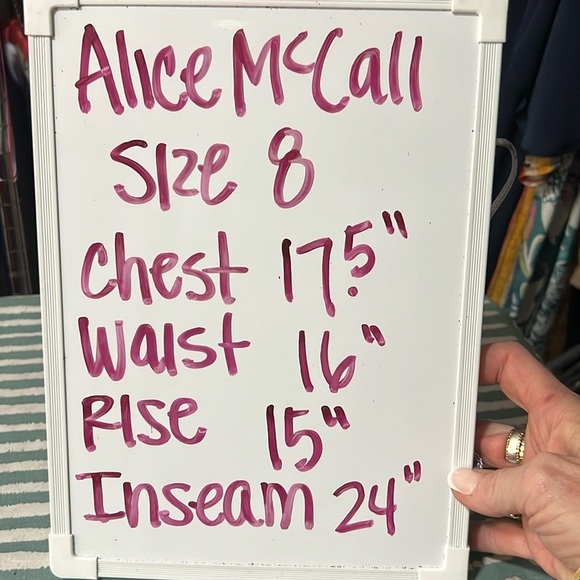 Alice McCall
Size 8
Chest 17.5"
Waist 16"
Rise 15"
Inseam 24"